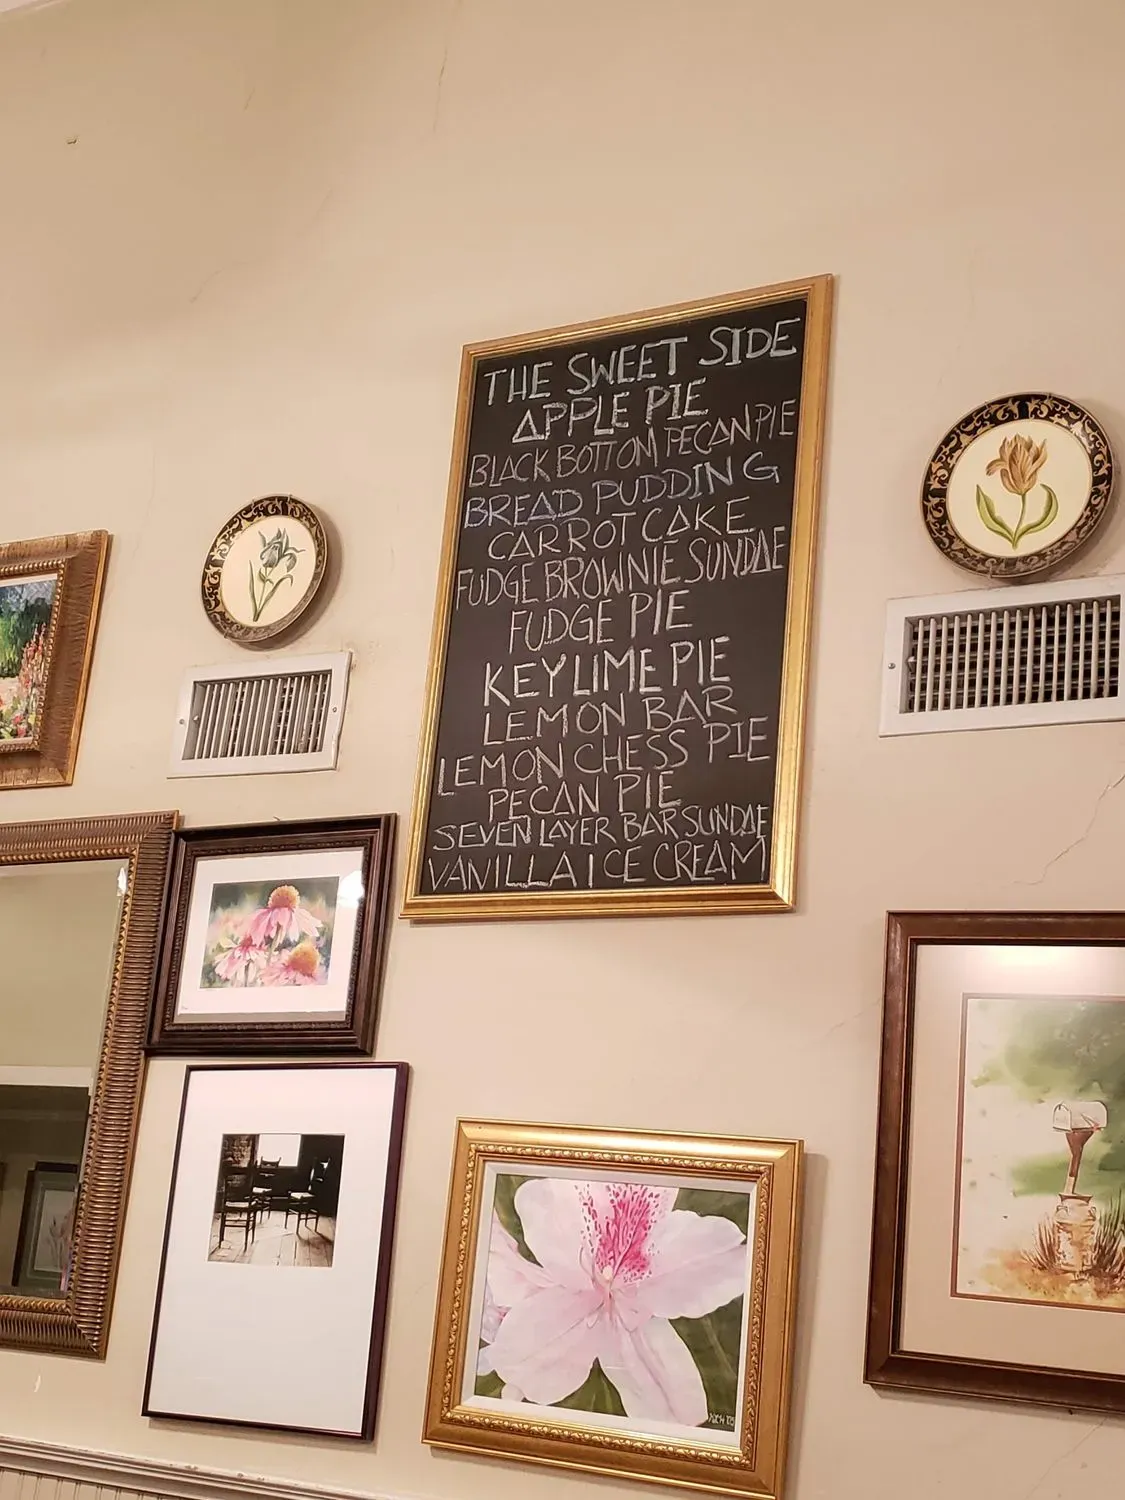 THE SWEET SIDE
APPLE PIE
BLACK BOTTOM PECAN PIE
BREAD PUDDING
CARROT CAKE
FUDGE BROWNIE SUNDAE
FUDGE PIE
KEY LIME PIE
LEMON BAR
LEMON CHESS PIE
PECAN PIE
SEVEN LAYER BAR SUNDAE
VANILLA ICE CREAM